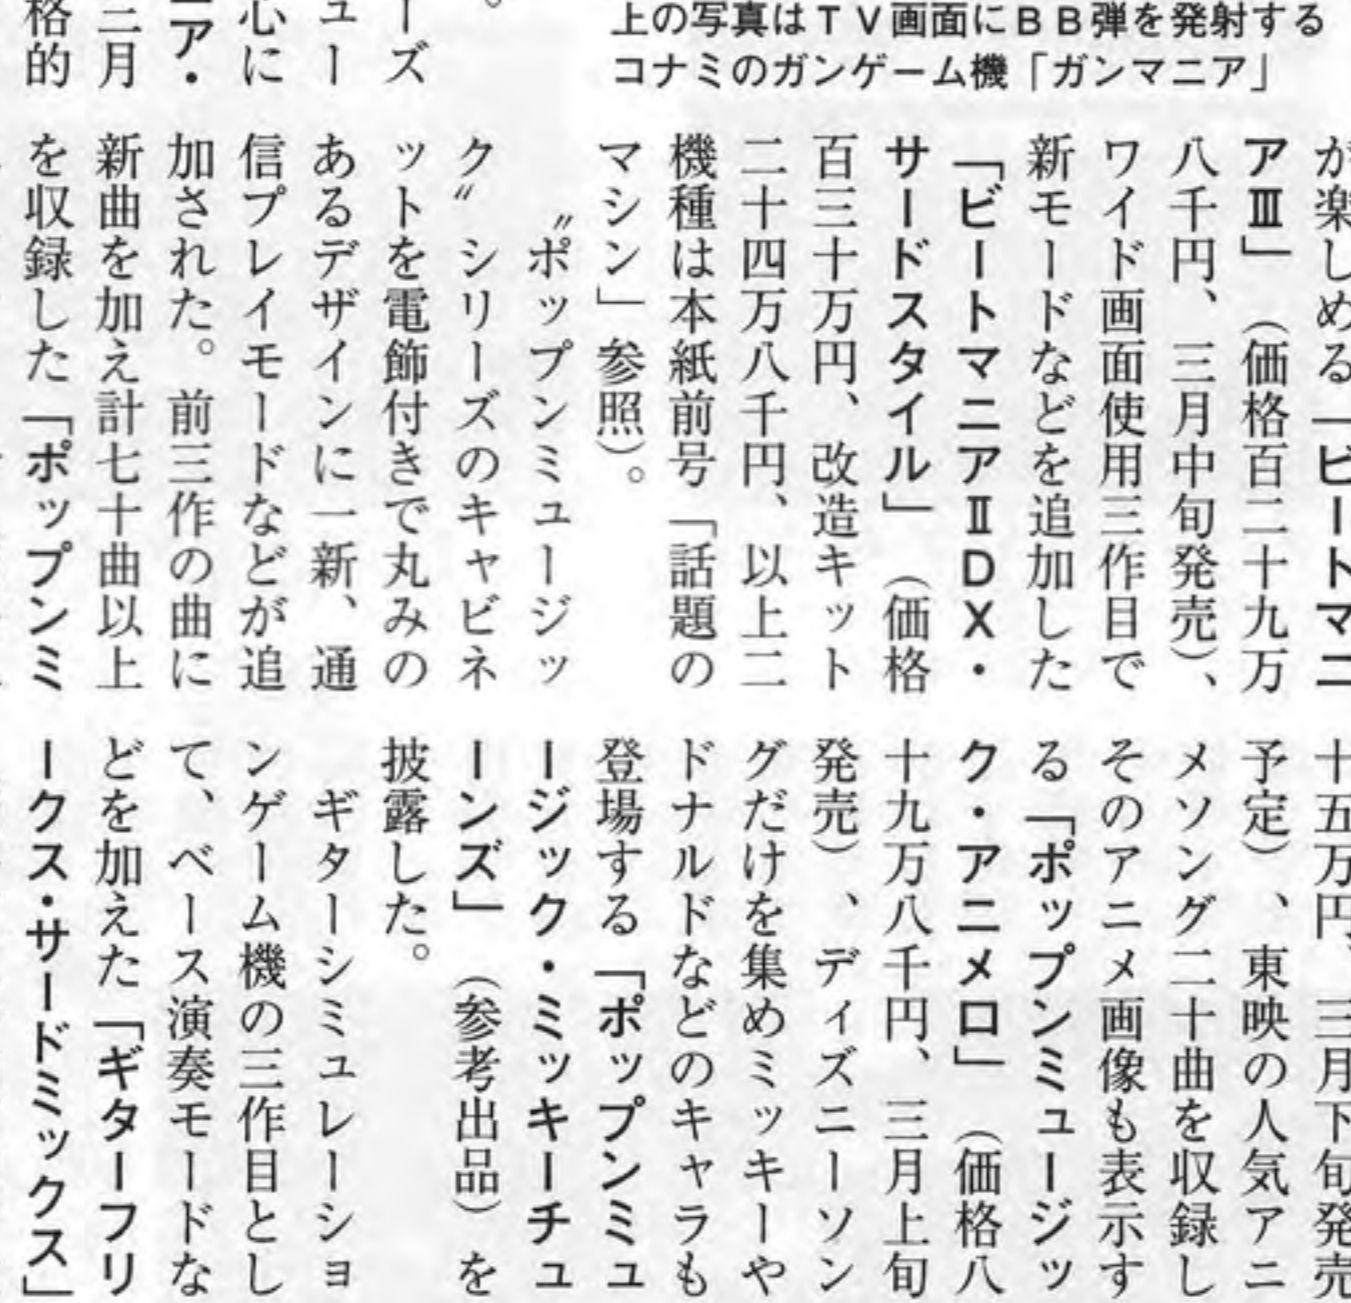 上の写真はＴＶ画面にＢＢ弾を発射する
コナミのガンゲーム機「ガンマニア」
。
ーズ
ュー
心に
ア・
三月
格的
が楽しめる「ビートマニ
アⅢ」（価格百二十九万
八千円、三月中旬発売）、
ワイド画面使用三作目で
新モードなどを追加した
「ビートマニアⅡＤＸ・
サードスタイル」（価格
百三十万円、改造キット
二十四万八千円、以上二
機種は本紙前号「話題の
マシン」参照）。
〝ポップンミュージッ
ク〟シリーズのキャビネ
ットを電飾付きで丸みの
あるデザインに一新、通
信プレイモードなどが追
加された。前三作の曲に
新曲を加え計七十曲以上
を収録した「ポップンミ
十五万円、三月下旬発売
予定）、東映の人気アニ
メソング二十曲を収録し
そのアニメ画像も表示す
る「ポップンミュージッ
ク・アニメロ」（価格八
十九万八千円、三月上旬
発売）、ディズニーソン
グだけを集めミッキーや
ドナルドなどのキャラも
登場する「ポップンミュ
ージック・ミッキーチュ
ーンズ」（参考出品）を
披露した。
ギターシミュレーショ
ンゲーム機の三作目とし
て、ベース演奏モードな
どを加えた「ギターフリ
ークス・サードミックス」